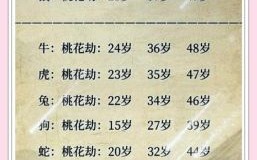 牛：桃花劫：24岁 36岁 48岁
虎：桃花劫：23岁 35岁 47岁
兔：桃花劫：22岁 34岁 46岁
狗：桃花劫：15岁 27岁 39岁
蛇：桃花劫：20岁 32岁 44岁